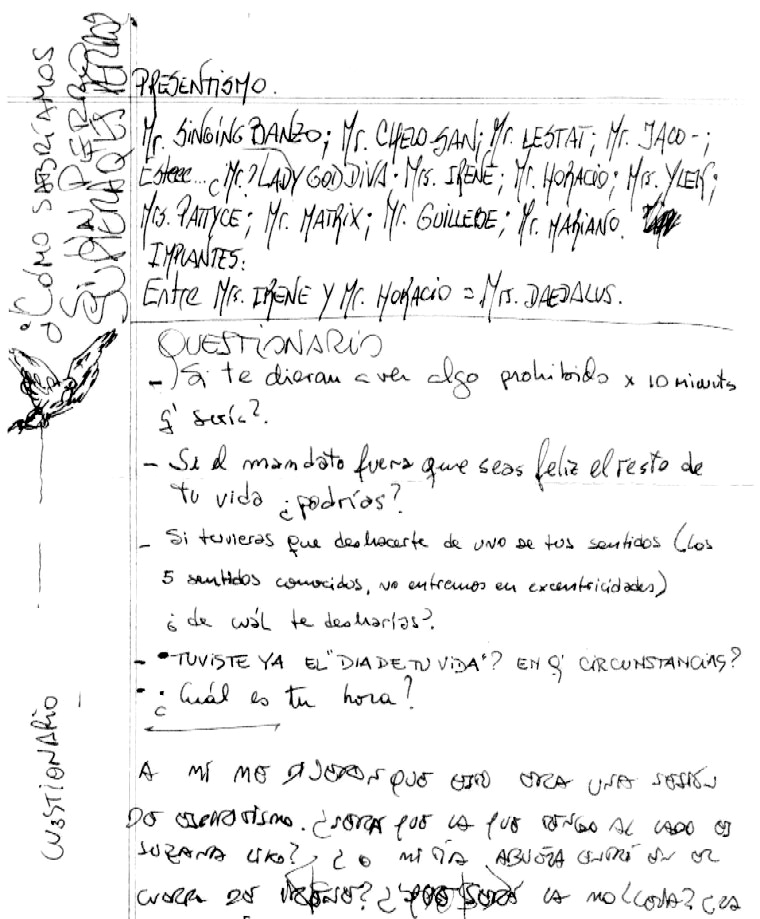 ¿CÓMO SABRÍAMOS
SI UN PERRO
PRESENTISMO.
Mr. SINGING BANZO; Mr. CHELO-SAN; Mr. LESTAT; Mr. JACO-;
Esteee... ¿Mr.? LADY GODDIVA. Mrs. IRENE; Mr. HORACIO; Mrs. YLEK;
Mrs. PATTYCE; Mr. MATRIX; Mr. GUILLEDE; Mr. MARIANO.
IMPLANTES:
Entre Mrs. IRENE Y Mr. HORACIO = Mrs. DAEDALUS.
QUESTIONARIO
- Si te dieran a ver algo prohibido x 10 minuts
q' sería?.
- Si el mandato fuera que seas feliz el resto de
tu vida ¿podrías?
- Si tuvieras que deshacerte de uno de tus sentidos (Los
5 sentidos conocidos, no entremos en excentricidades)
¿de cuál te desharías?.
- • TUVISTE YA EL "DIA DE TU VIDA"? EN Q' CIRCUNSTANCIAS?
• ¿Cuál es tu hora?
CUESTIONARIO
A MÍ ME DIJERON QUE ESTO ERA UNA SESIÓN
DE ESPIRITISMO. ¿SERÁ QUE LA QUE TENGO AL LADO ES
SUZANA ? ¿O MI TÍA ABUELA ENTRÓ EN EL
DE IRENE? ¿ SERÁ LA ?